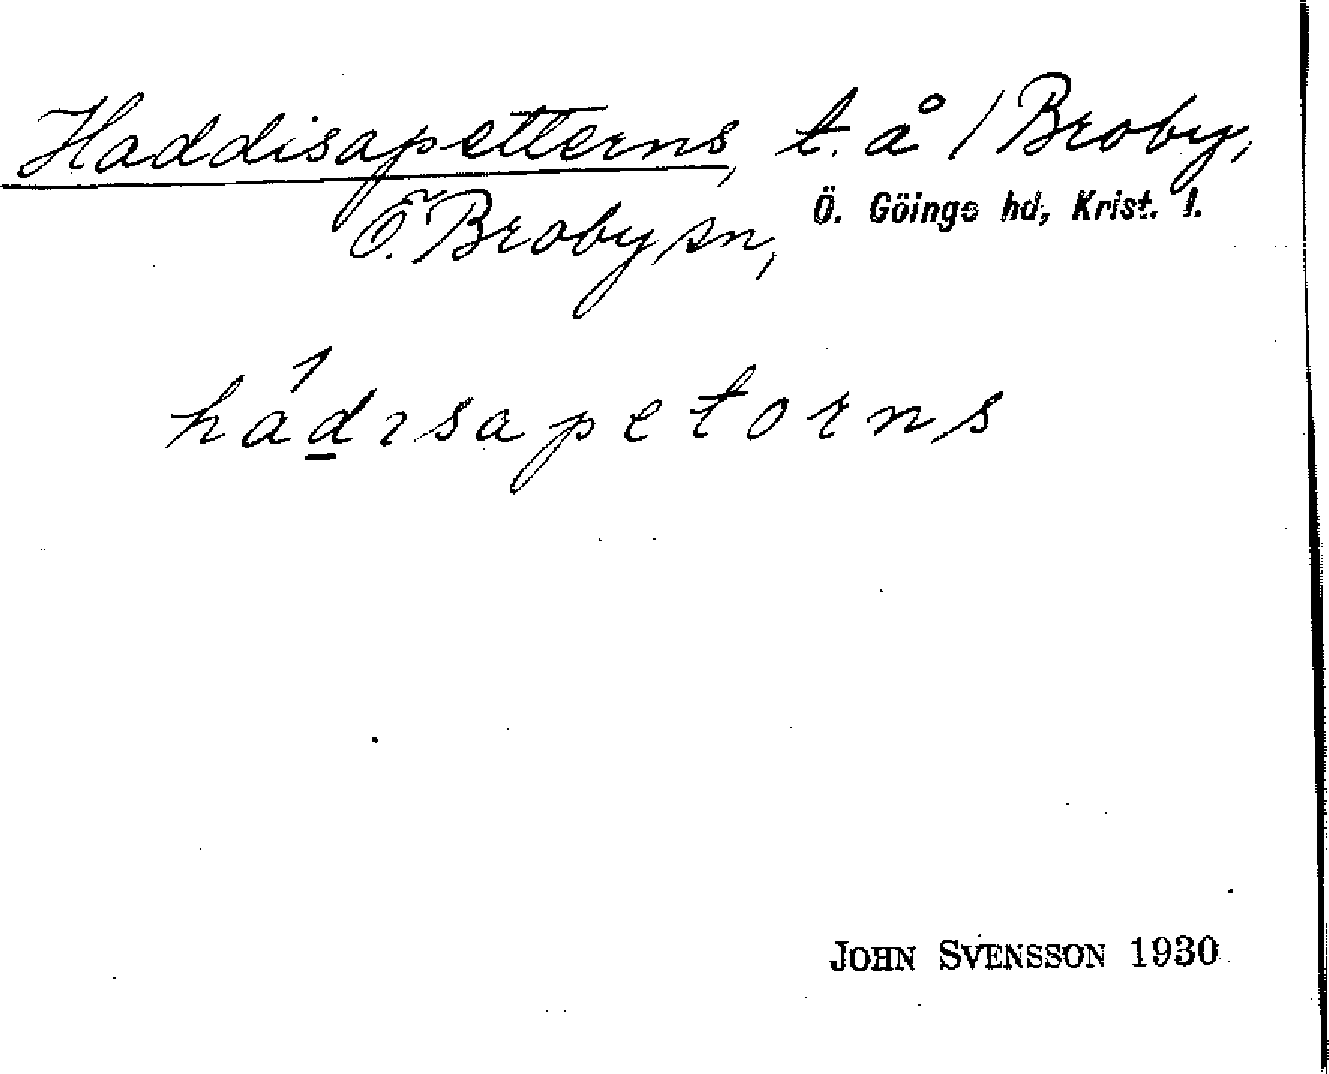 Haddisapetterns, t. å / Broby,
Ö. Broby sn, Ö. Göinge hd, Krist. l.
hádısapetorns
JOHN SVENSSON 1930